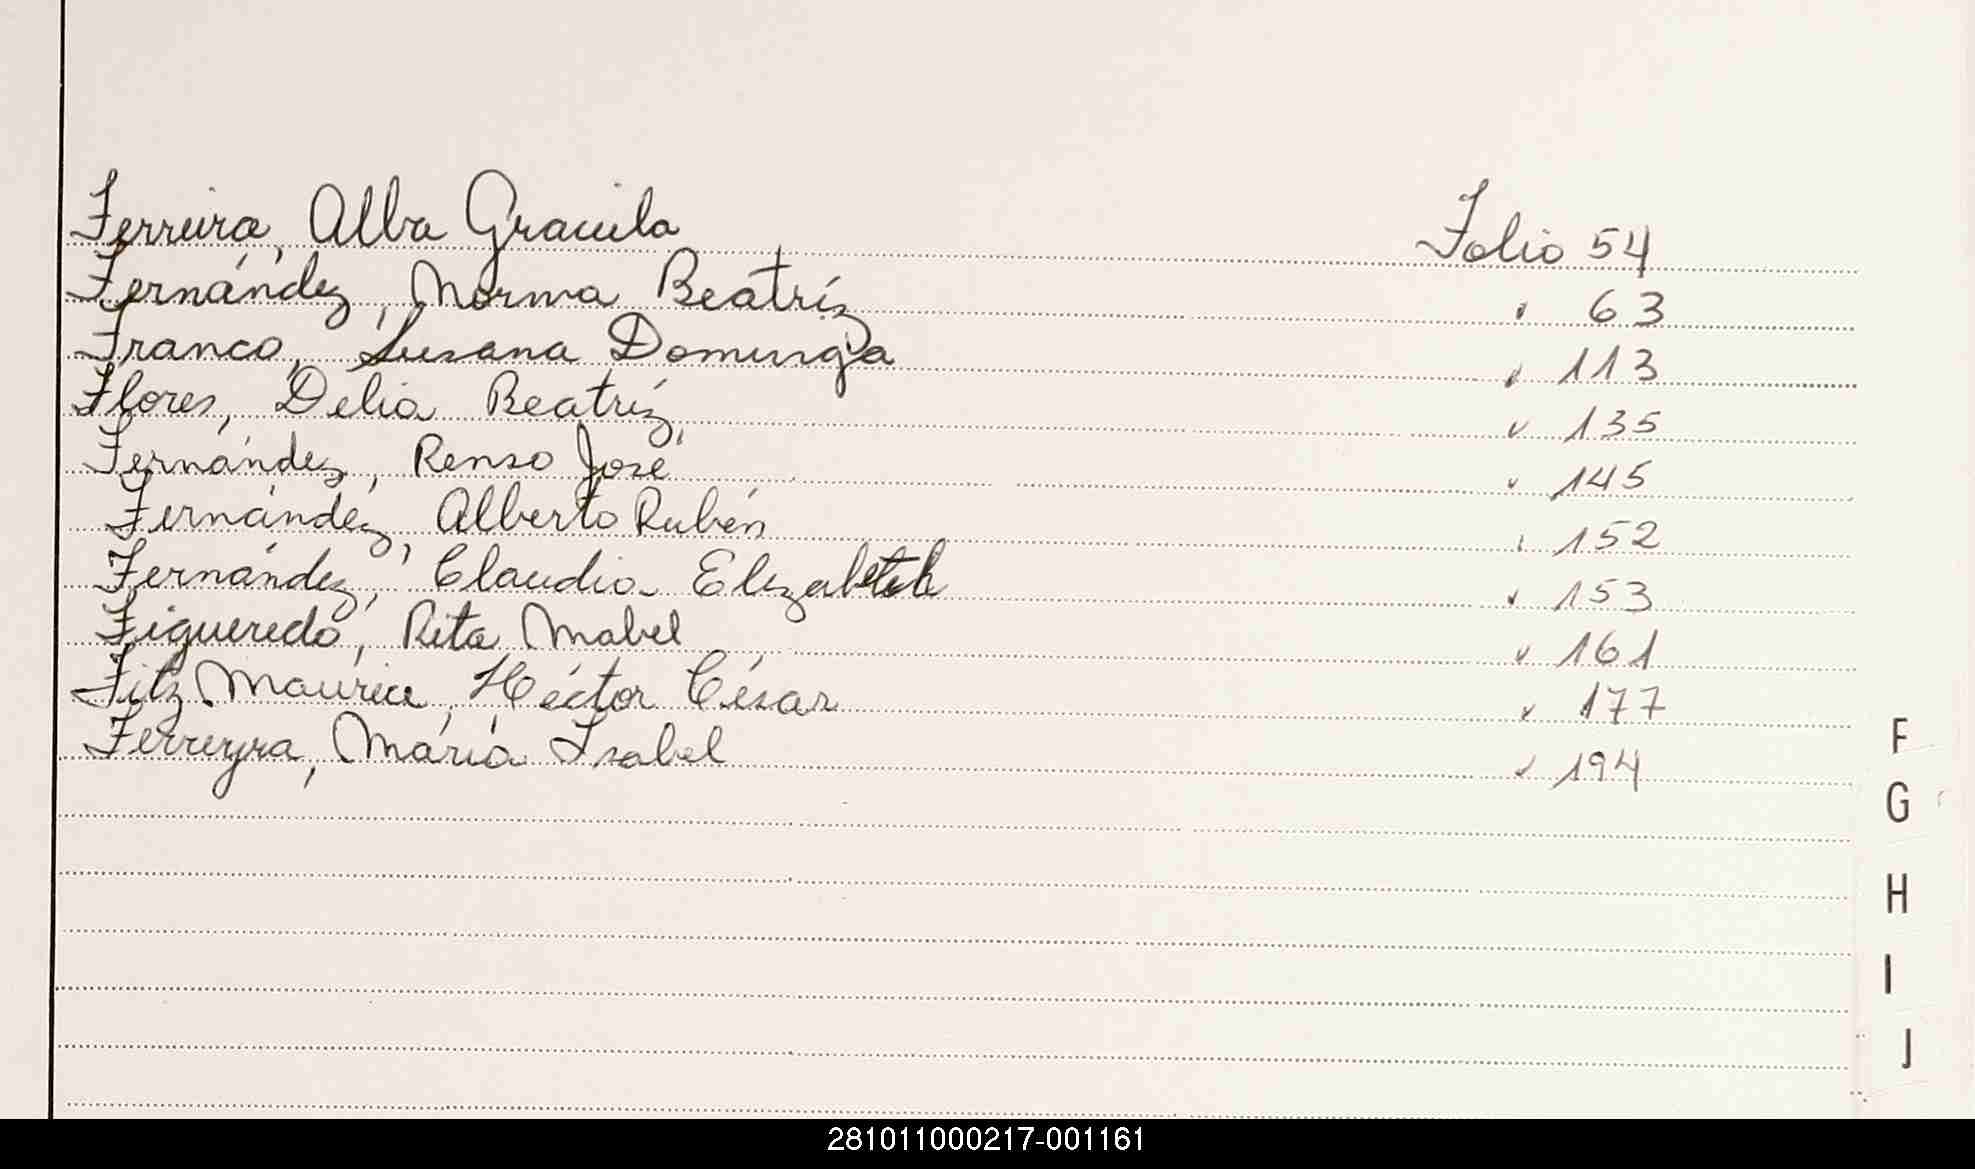 Ferreira, Alba Graciela Folio 54
Fernández, Norma Beatríz " 63
Franco, Susana Dominga " 113
Flores, Delia Beatríz " 135
Fernández, Renso José " 145
Fernández, Alberto Rubén " 152
Fernández, Claudia Elizabeteh " 153
Figueredo, Rita Mabel " 161
Fitz Maurice, Héctor César " 177
Ferreyra, María Isabel " 194
F
G
H
I
J
281011000217-001161